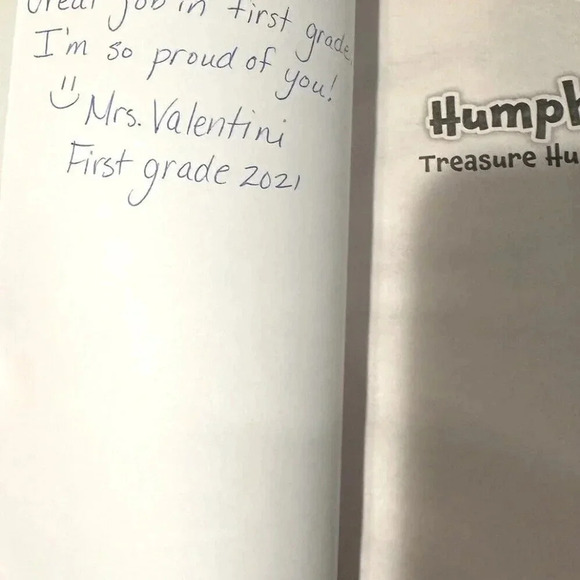 Great Job in first grade.
I'm so proud of you!
Mrs. Valentini
First grade 2021
Humph
Treasure Hu